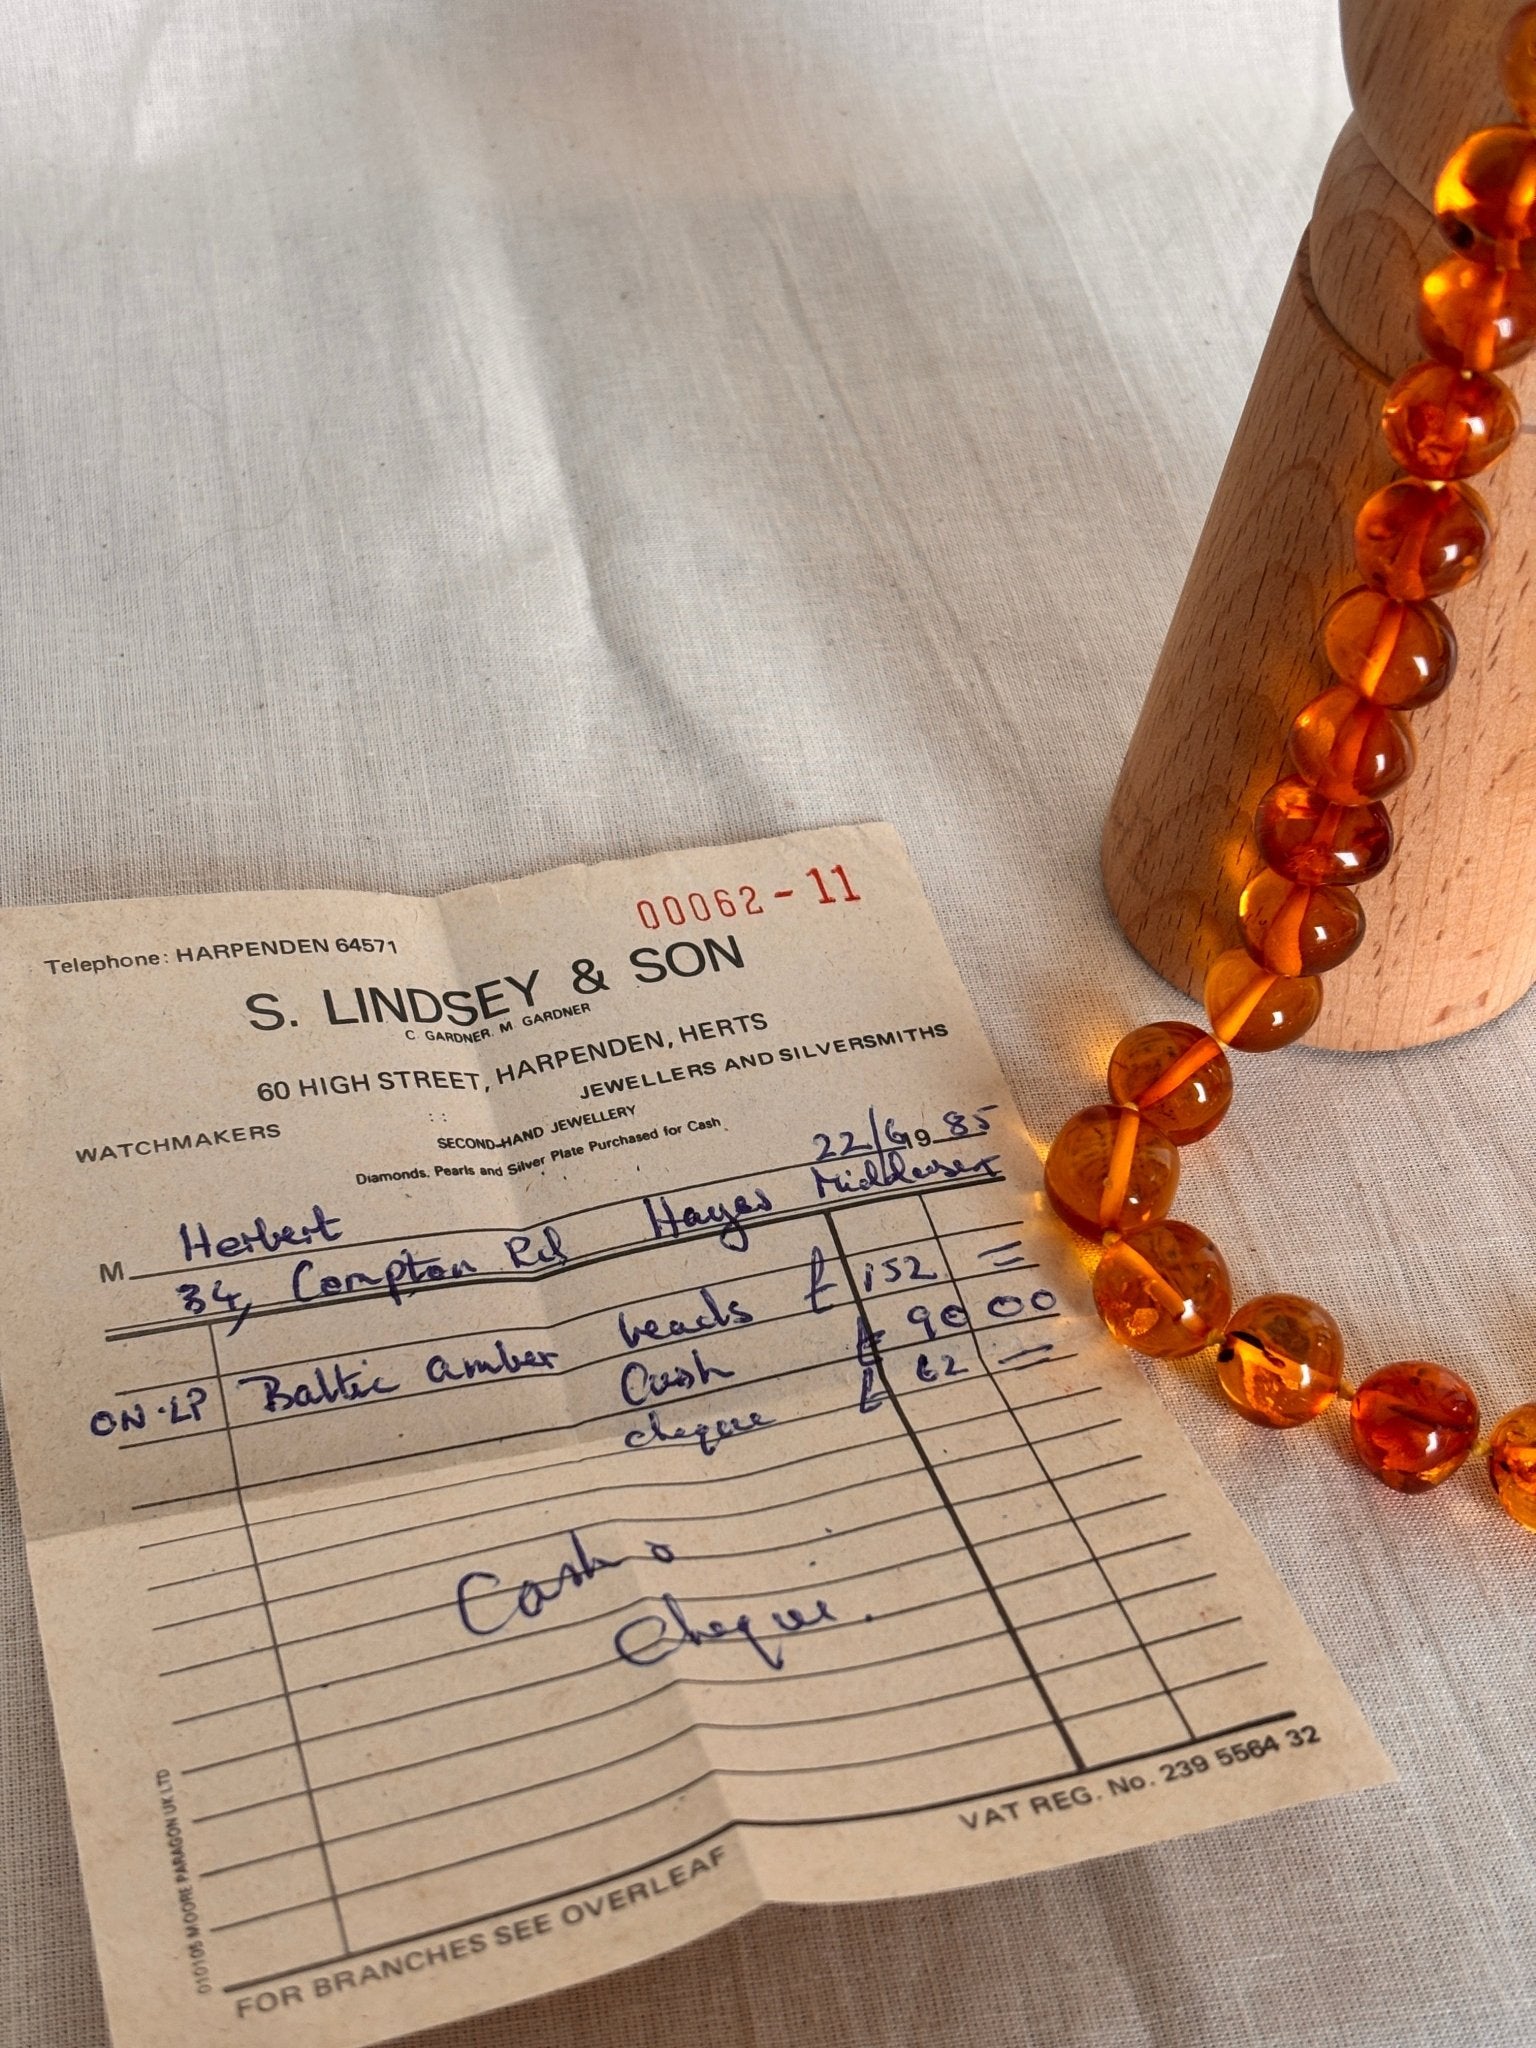 00062-11
Telephone: HARPENDEN 64571
S. LINDSEY & SON
C. GARDNER. M. GARDNER
60 HIGH STREET, HARPENDEN, HERTS
WATCHMAKERS JEWELLERS AND SILVERSMITHS
SECOND-HAND JEWELLERY
Diamonds, Pearls and Silver Plate Purchased for Cash
22/6 19 85
M Herbert
34, Compton Rd Hayes Middlesex
ON·LP Baltic amber beads £ 152 =
Cash £ 90 00
cheque £ 62 =
Cash &
Cheque.
VAT REG. No. 239 5564 32
FOR BRANCHES SEE OVERLEAF
010105 MOORE PARAGON UK LTD